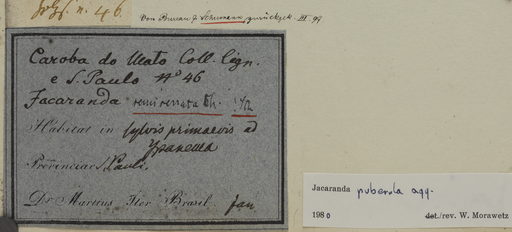 n. 46.
Von Bureau & Schumann zurückgek. III. 99
Caroba do Mato Coll. lign.
e S. Paulo No 46
Jacaranda semiserrata Ch. !Sch
Habitat in sylvis primaevis ad
Ypanema
Provinciae S. Pauli,
Dr Martius Iter Brasil. Jan
Jacaranda puberula agg.
1980 det./rev. W. Morawetz